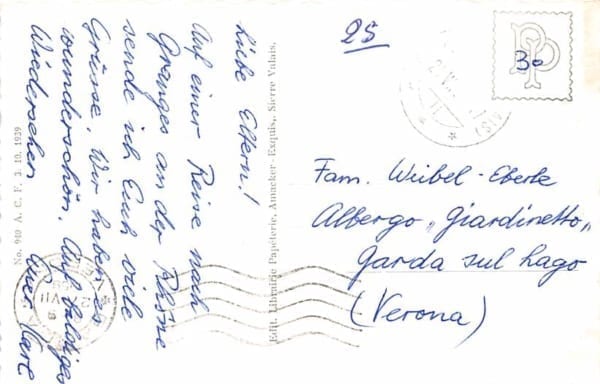 Liebe Eltern!
Auf einer Reise nach
Granges an der Rhône
sende ich Euch viele
Grüsse. Wir haben es
wunderschön. Auf baldiges
Wiedersehen Euer
No. 940 A. C. F. 3. 10. 1939
Edit. Librairie Papeterie, Amacker-Exquis, Sierre Valais.
25
PP
30
Fam. Weibel-Eberle
Albergo "Giardinetto"
Garda sul Lago
(Verona)